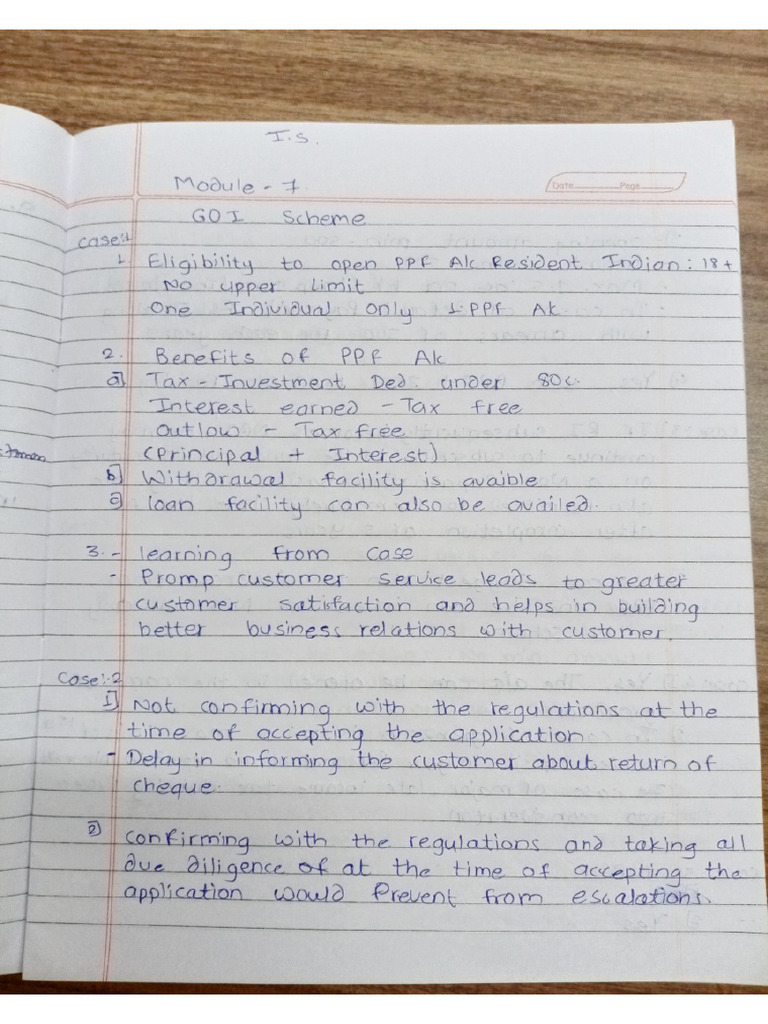 I.S.
Module - 7.
Date Page
GOI Scheme
Case:1
1 Eligibility to open PPF A/c Resident Indian: 18+
No upper limit
One Individual only 1 PPF A/c
2. Benefits of PPF A/c
a) Tax - Investment Ded under 80c.
Interest earned - Tax free
Outlow - Tax free
(Principal + Interest)
b) Withdrawal facility is avaible
c) loan facility can also be availed.
3. - learning from case
- Promp customer service leads to greater
customer satisfaction and helps in building
better business relations with customer.
Case:-2
1) Not confirming with the regulations at the
time of accepting the application
- Delay in informing the customer about return of
cheque.
2) confirming with the regulations and taking all
due diligence of at the time of accepting the
application would Prevent from escalations.